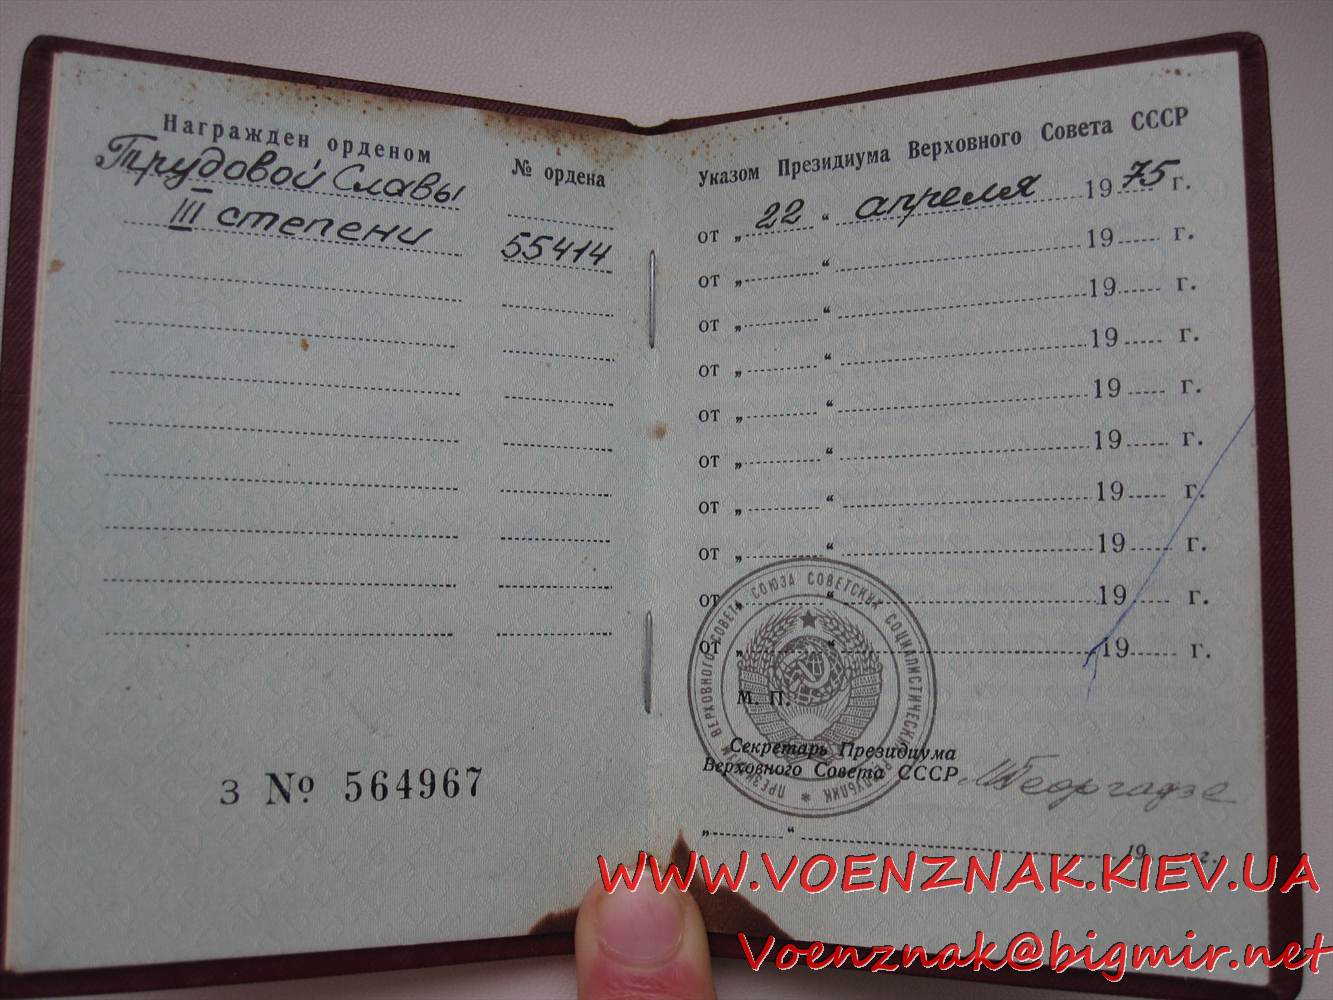 Награжден орденом
№ ордена
Трудовой Славы
III степени
55414
З № 564967
Указом Президиума Верховного Совета СССР
от „ 22 “ апреля 1975 г.
от „ “ 19 г.
от „ “ 19 г.
от „ “ 19 г.
от „ “ 19 г.
от „ “ 19 г.
от „ “ 19 г.
от „ “ 19 г.
от „ “ 19 г.
от „ “ 19 г.
ПРЕЗИДИУМ ВЕРХОВНОГО СОВЕТА СОЮЗА СОВЕТСКИХ СОЦИАЛИСТИЧЕСКИХ РЕСПУБЛИК
М. П.
Секретарь Президиума
Верховного Совета СССР
МГеоргадзе
„ “ 19 г.
WWW.VOENZNAK.KIEV.UA
Voenznak@bigmir.net